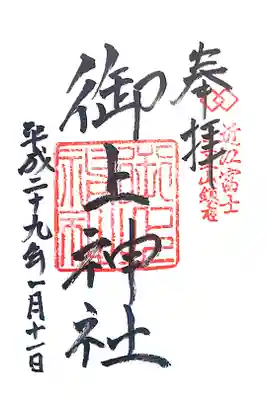 奉拝
近江富士
御上神社
平成二十九年一月十一日